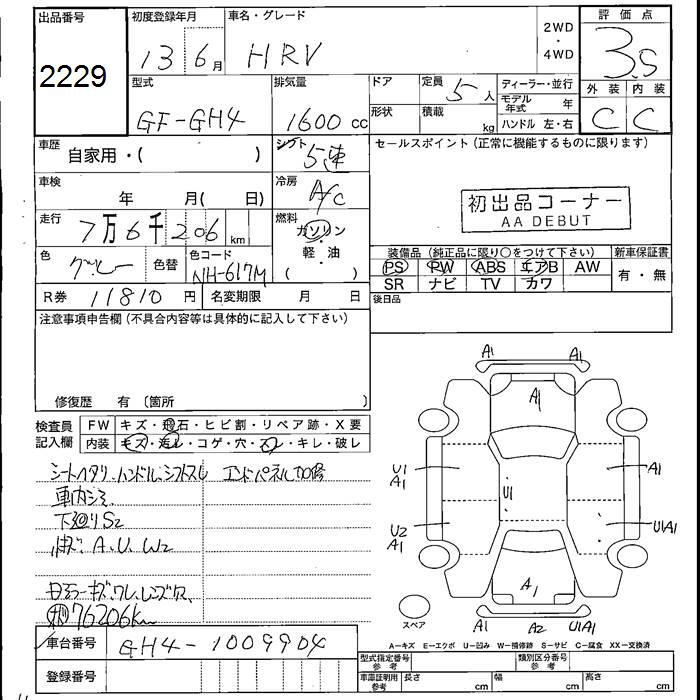 出品番号 初度登録年月 車名・グレード 2WD・4WD 評価点
2229 13 6月 HRV 3.5
型式 排気量 ドア 定員 5人 ディーラー・並行 外装 内装
GF-GH4 1600cc 形状 積載 kg モデル年式 年 C C
ハンドル 左・右
車歴 自家用・( ) シフト 5速 セールスポイント(正常に機能するものに限ります)
車検 年 月( 日) 冷房 A/C 初出品コーナー
AA DEBUT
走行 7万6千206km 燃料 ガソリン・軽・油 ( )
色 グレー 色替 色コード NH-617M 装備品(純正品に限り○をつけて下さい) 新車保証書
PS PW ABS エアB AW 有・無
SR ナビ TV カワ
R券 11810円 名変期限 月 日 後日品
注意事項申告欄(不具合内容等は具体的に記入して下さい)
修復歴 有〔箇所 〕
検査員記入欄 FW キズ・飛石・ヒビ割・リペア跡・X要
内装 キズ・汚レ・コゲ・穴・スレ・キレ・破レ
シートヘタリ ハンドル、シフトスレ エンドパネル
車内シミ
下回りS2
A.U.W2
76206km
車台番号 GH4-1009904
登録番号
A1 A1
A1
U1 A1 A1
U1
U2 A1 U1A1
A1
スペア A1 A2 U1A1
A―キズ E―エクボ U―凹み W―補修跡 S―サビ C―腐食 XX―交換済
型式指定番号 参考 類別区分番号 参考
車庫証明用 参考 長さ cm 幅 cm 高さ cm